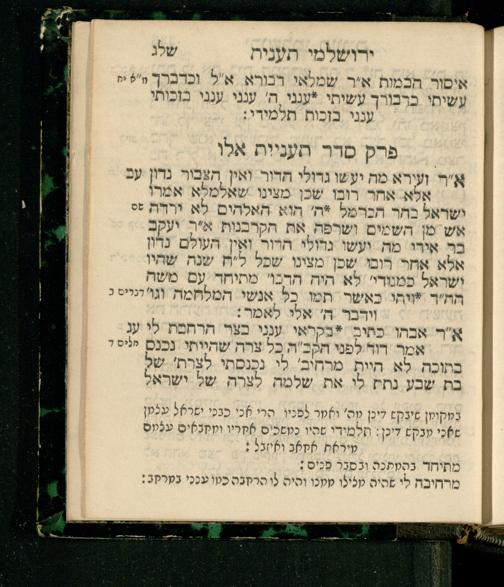 ירושלמי תענית שלג
איסור הבמות א״ר שמלאי דבורא א״ל וכדברך מ״א יח
עשיתי בדבורך עשיתי *ענני ה׳ ענני ענני בזכותי
ענני בזכות תלמידי :
פרק סדר תעניות אלו
א״ר זעירא מה יעשו גדולי הדור ואין הצבור נדון עב
אלא אחר רובו שכן מצינו שאלמלא אמרו
ישראל בהר הכרמל *ה׳ הוא האלהים לא ירדה שם
אש מן השמים ושרפה את הקרבנות א״ר יעקב
בר אידי מה יעשו גדולי הדור ואין העולם נדון
אלא אחר רובו שכן מצינו שכל ל״ח שנה שהיו
ישראל כמנודי׳ לא היה הדבו׳ מתיחד עם משה
הה״ד *ויהי כאשר תמו כל אנשי המלחמה וגו׳ דברים ב
וידבר ה׳ אלי לאמר :
א״ר אבהו כתיב *בקראי ענני בצר הרחבת לי ענ
אמר דוד לפני הקב״ה כל צרה שהייתי נכנס תלים ד
בתוכה לא היית מרחיב׳ לי נכנסתי לצרת׳ של
בת שבע נתת לי את שלמה לצרה של ישראל
במקומן שיבקש דיכן מה׳ ואמר לפניו הרי אני כבני ישראל עלמן
שאני מבקש דיכן : תלמידי שהיו נמשכים אחריו ומתבאים עלמם
מיראת אחאב ואיזבל :
מתיחד בהמתנה ובסבר פנים :
מרחיבה לי שהיה מלילו ממנו והיה לו הרחבה כמו ענני במרחב :